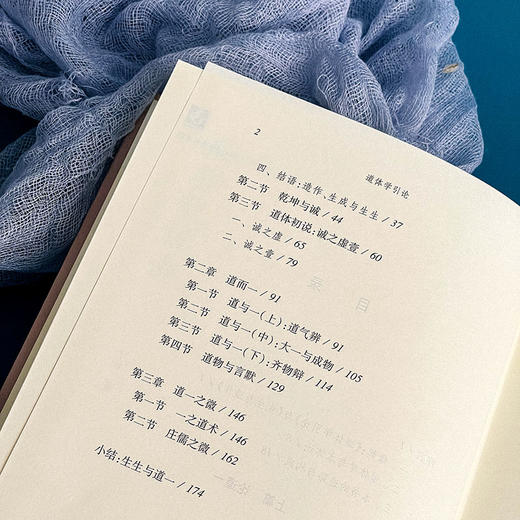 2
道体学引论
四、结语:造作、生成与生生 / 37
第二节 乾坤与诚 / 44
第三节 道体初说:诚之虚壹 / 60
一、诚之虚 / 65
二、诚之壹 / 79
第二章 道而一 / 91
第一节 道与一(上):道气辨 / 91
第二节 道与一(中):大一与成物 / 105
第三节 道与一(下):齐物辩 / 114
第四节 道物与言默 / 129
第三章 道一之微 / 146
第一节 一之道术 / 146
第二节 庄儒之微 / 162
小结:生生与道一 / 174